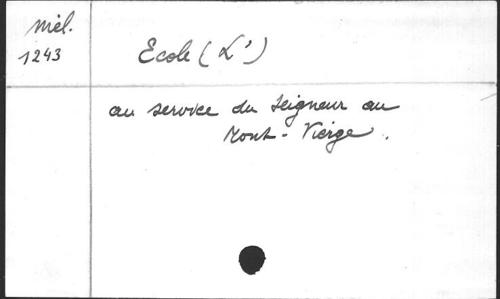 Mél.
1243
Ecole (L')
au service du Seigneur au
Mont-Vierge.